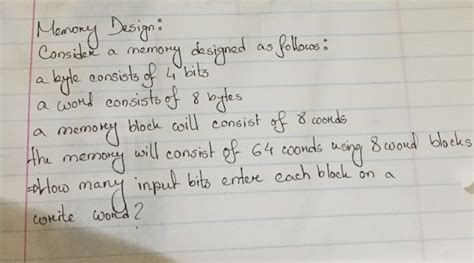 Memory Design:
Consider a memory designed as follows:
a byte consists of 4 bits
a word consists of 8 bytes
a memory block will consist of 8 words
the memory will consist of 64 words using 8 word blocks
⇒ How many input bits enter each block on a
write word?